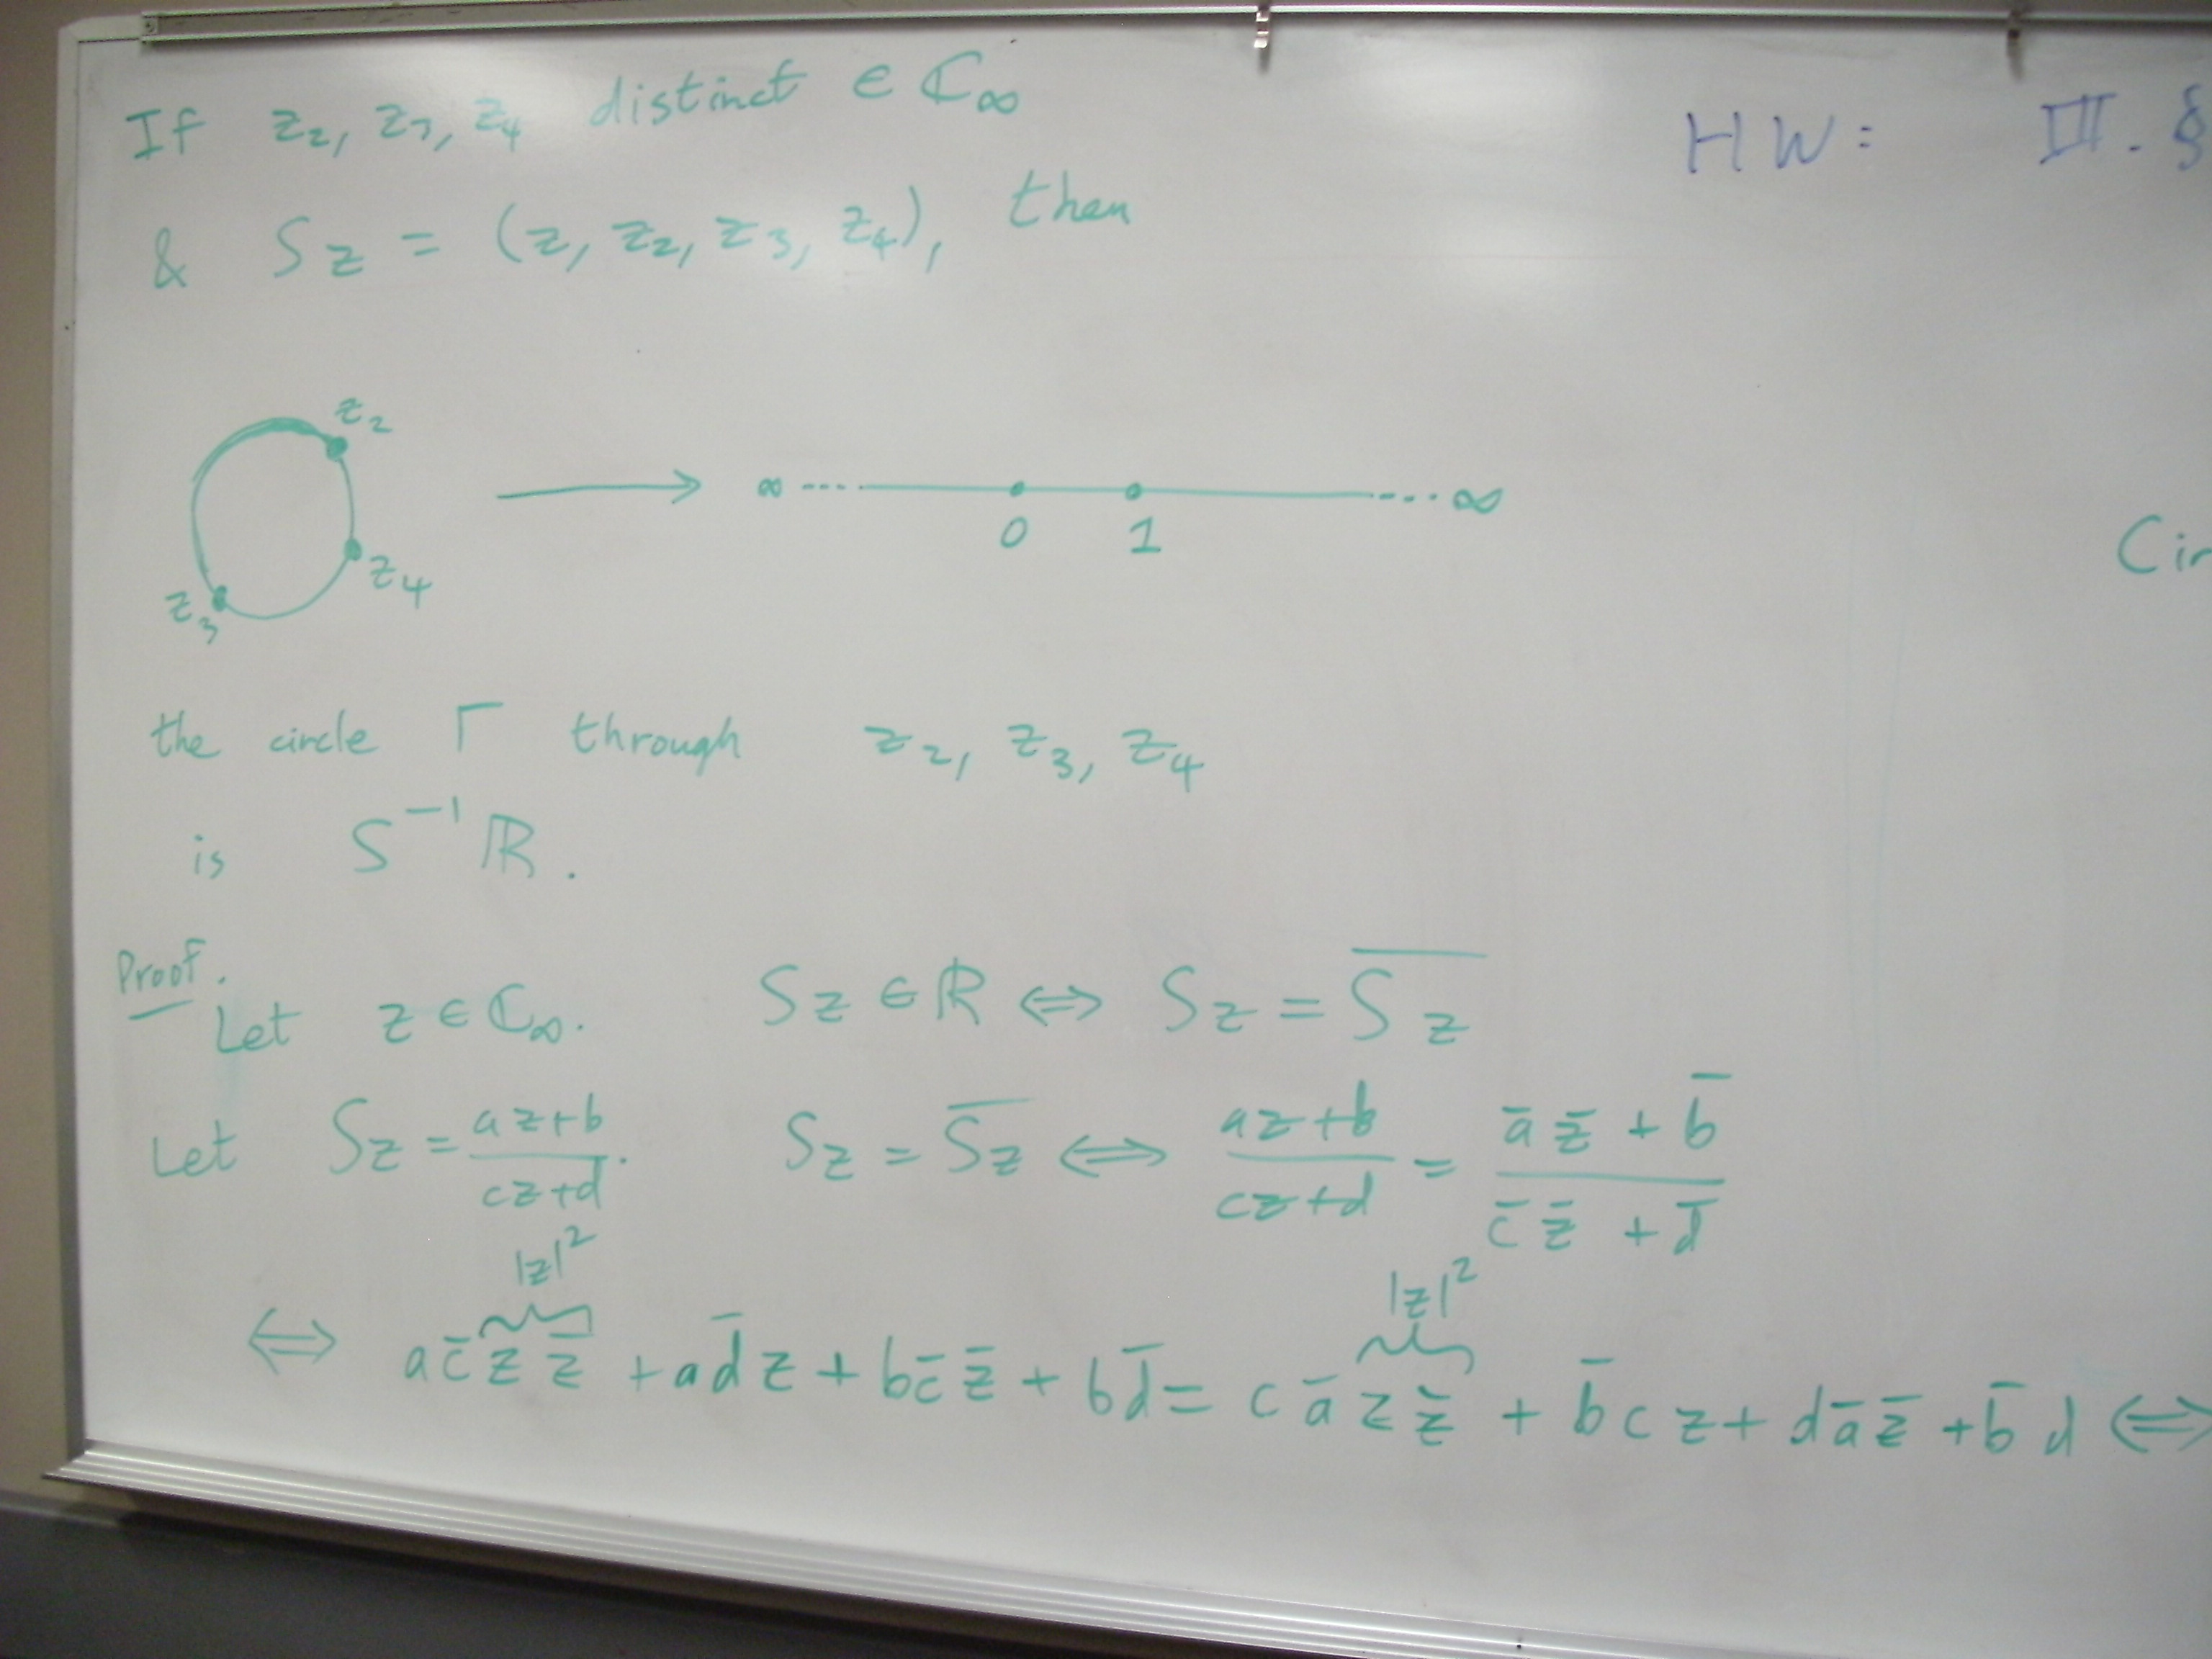 If z₂, z₃, z₄ distinct ∈ ℂ∞
HW: III. §
& Sz = (z, z₂, z₃, z₄), then
z₂
∞ ∞
0 1
Cir
z₄
z₃
the circle Γ through z₂, z₃, z₄
is S⁻¹ℝ.
Proof.
Let z ∈ ℂ∞. Sz ∈ ℝ ⇔ Sz = S̅z̅
Let Sz = (az+b)/(cz+d). Sz = S̅z̅ ⇔ (az+b)/(cz+d) = (a̅z̅ + b̅)/(c̅z̅ + d̅)
|z|² |z|²
⇔ ac̅zz̅ + ad̅z + bc̅z̅ + bd̅ = ca̅zz̅ + b̅cz + da̅z̅ + b̅d ⇔